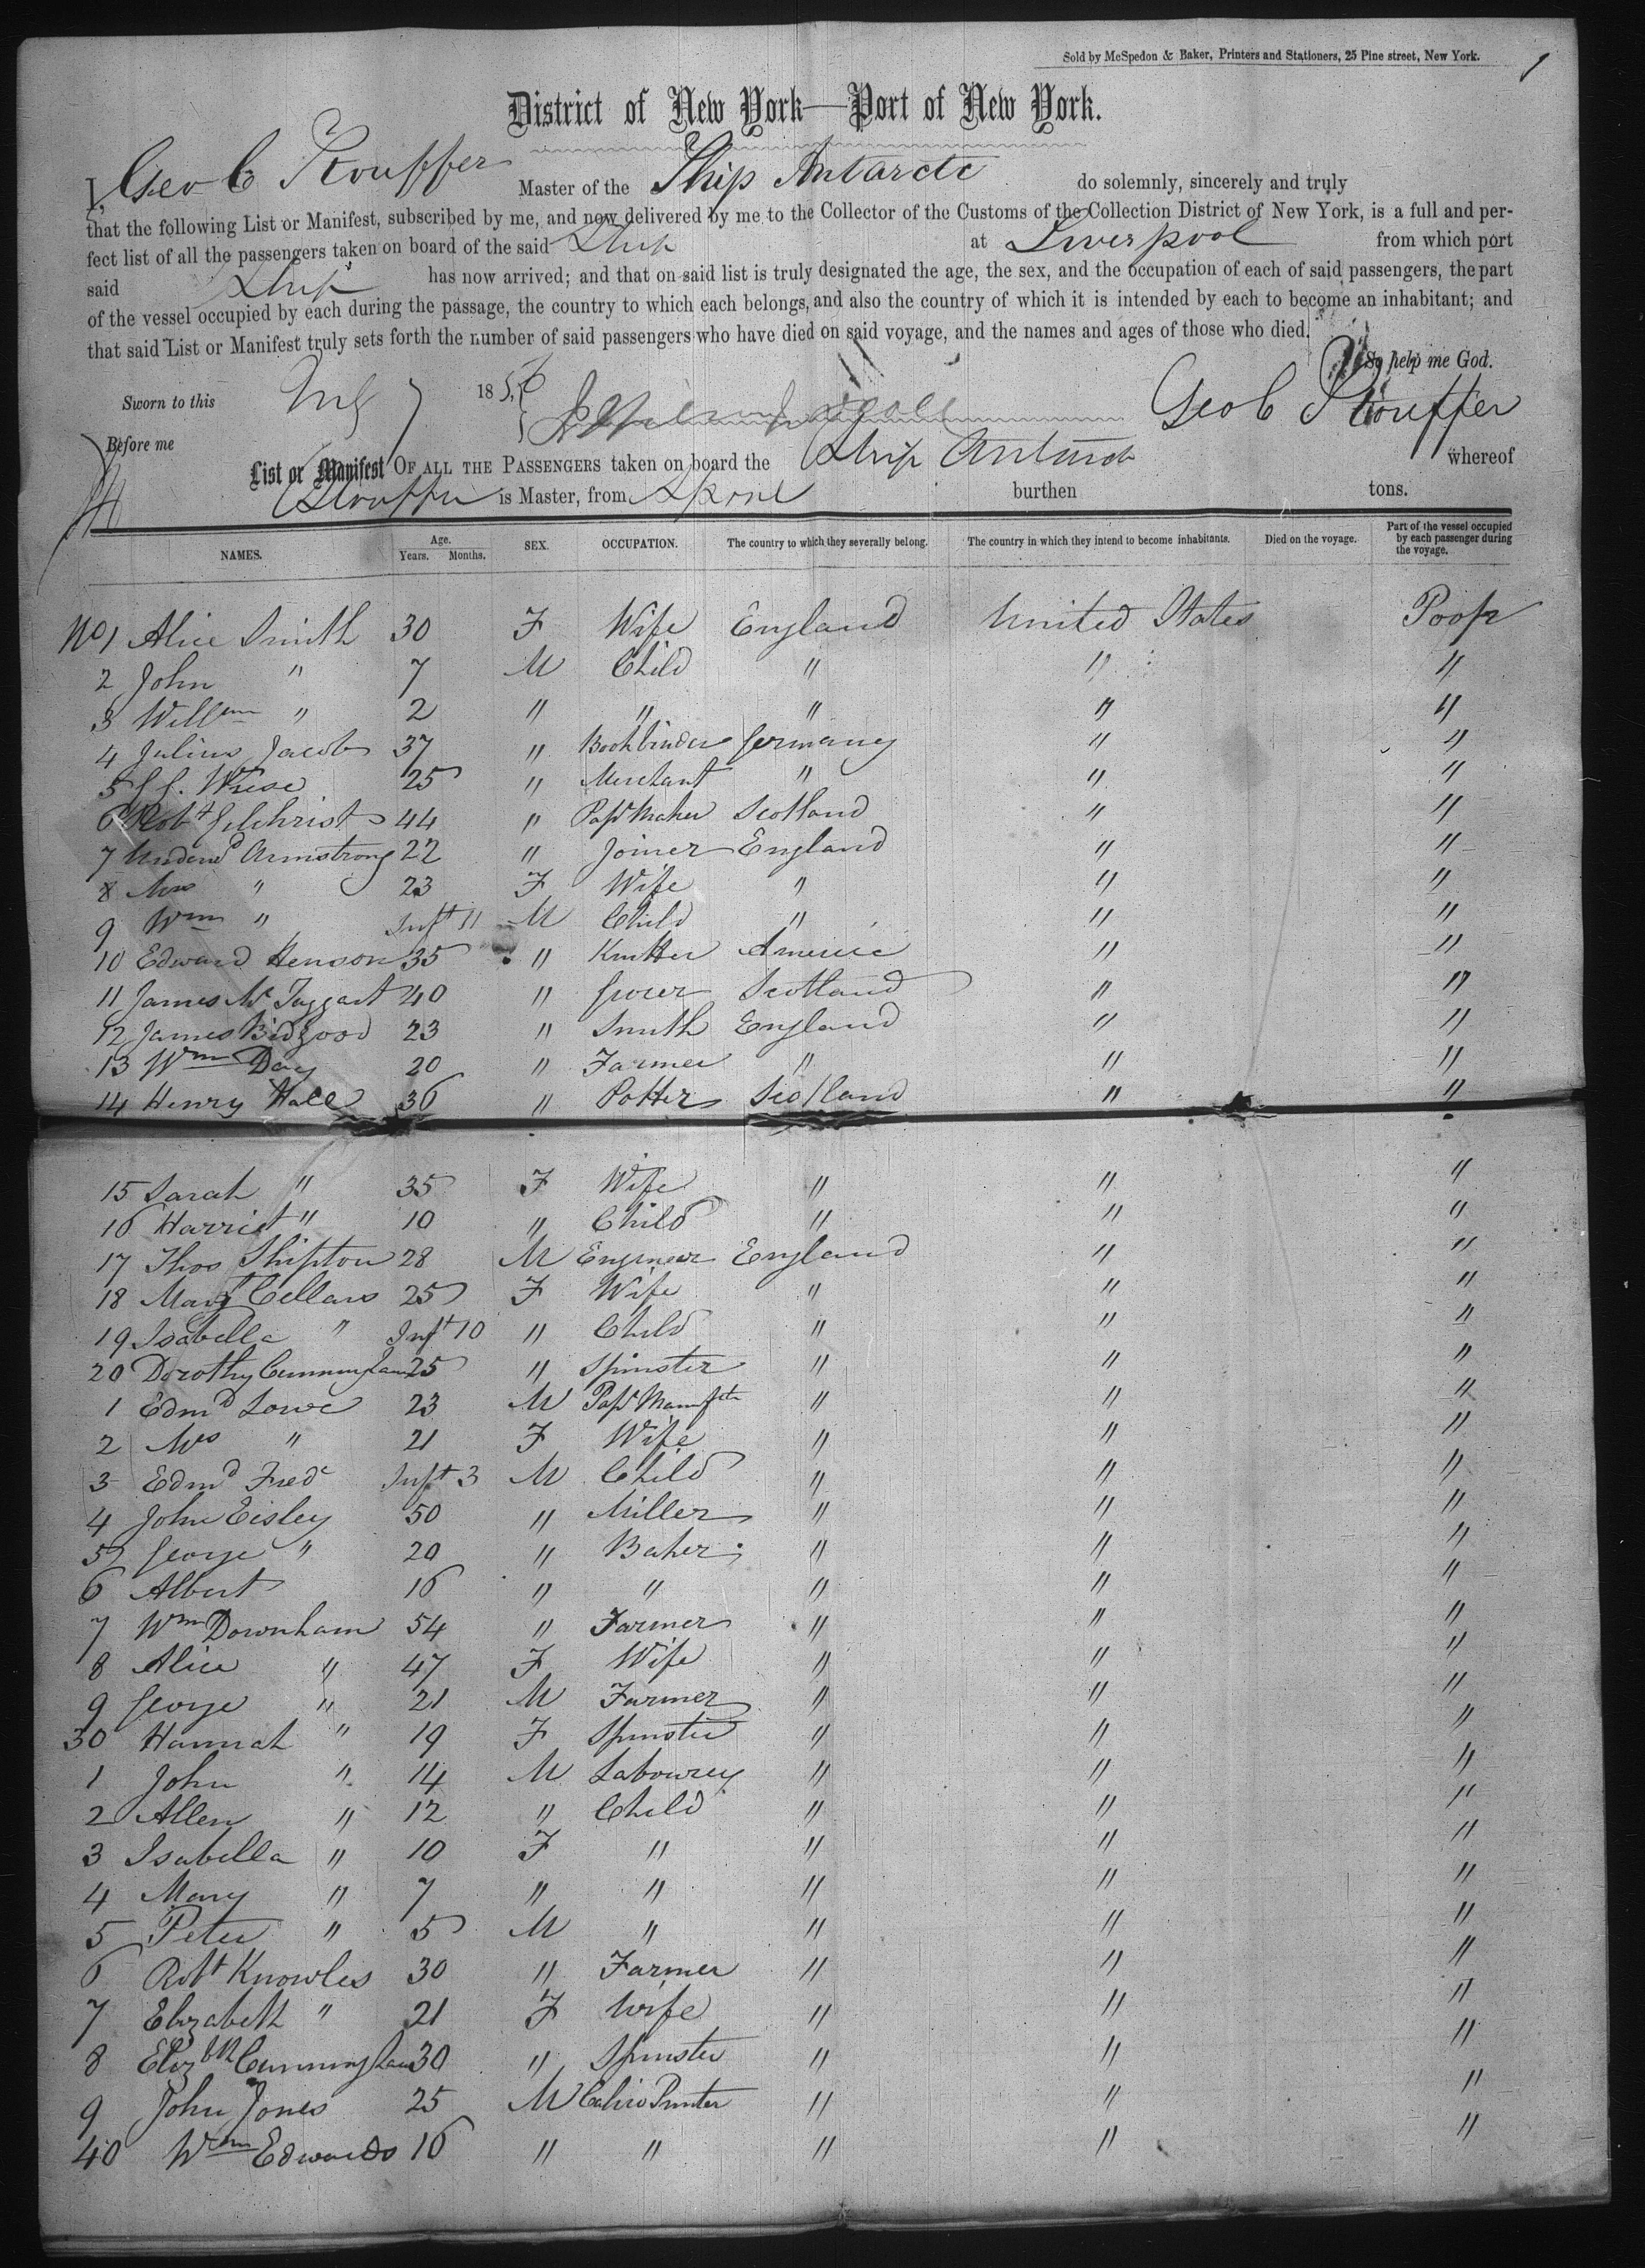 Sold by McSpedon & Baker, Printers and Stationers, 25 Pine street, New York.
1
District of New York—Port of New York.
I, Geo C Stouffer Master of the Ship Antarctc do solemnly, sincerely and truly
that the following List or Manifest, subscribed by me, and now delivered by me to the Collector of the Customs of the Collection District of New York, is a full and per-
fect list of all the passengers taken on board of the said Ship at Liverpool from which port
said Ship has now arrived; and that on said list is truly designated the age, the sex, and the occupation of each of said passengers, the part
of the vessel occupied by each during the passage, the country to which each belongs, and also the country of which it is intended by each to become an inhabitant; and
that said List or Manifest truly sets forth the number of said passengers who have died on said voyage, and the names and ages of those who died.
So help me God.
Sworn to this 7 1856 Geo C Stouffer
Before me
List or Manifest OF ALL THE PASSENGERS taken on board the Ship Antarct whereof
Stouffer is Master, from burthen tons.
NAMES. Age. Years. Months. SEX. OCCUPATION. The country to which they severally belong. The country in which they intend to become inhabitants. Died on the voyage. Part of the vessel occupied by each passenger during the voyage.
No 1 Alice Smith 30 F Wife England United States Poop
2 John " 7 M Child " " "
3 Willam " 2 " " " " "
4 Julius Jacobs 37 " Bookbinder Germany " "
5 Wiese 25 " Merchant " " "
6 Robt Gilchrist 44 " Papr Maker Scotland " "
7 Armstrong 22 " Joiner England " "
8 Mrs " 23 F Wife " " "
9 Wm " Inft 11 M Child " " "
10 Edward Henson 35 " America " "
11 James McTaggart 40 " Grocer Scotland " "
12 James Bidgood 23 " Smith England " "
13 Wm Day 20 " Farmer " " "
14 Henry Hall 36 " Potter Scotland " "
15 Sarah " 35 F Wife " " "
16 Harriet " 10 " Child " " "
17 Thos Shipton 28 M Engineer England " "
18 Mary Cellars 25 F Wife " " "
19 Isabella " Inft 10 " Child " " "
20 Dorothy Cunningham 25 " Spinster " " "
1 Edmd Lowe 23 M Papr Manuftr " " "
2 Mrs " 21 F Wife " " "
3 Edmd Fredc Inft 3 M Child " " "
4 John Eisley 50 " Miller " " "
5 George " 20 " Baker " " "
6 Albert 16 " " " " "
7 Wm Downham 54 " Farmer " " "
8 Alice " 47 F Wife " " "
9 George " 21 M Farmer " " "
30 Hannah " 19 F Spinster " " "
1 John " 14 M Labourer " " "
2 Allen " 12 " Child " " "
3 Isabella " 10 F " " " "
4 Mary " 7 " " " " "
5 Peter " 5 M " " " "
6 Robt Knowles 30 " Farmer " " "
7 Elizabeth " 21 F Wife " " "
8 Elizbth Cunningham 30 " Spinster " " "
9 John Jones 25 M Calico Printer " " "
40 Wm Edwards 16 " " " " "